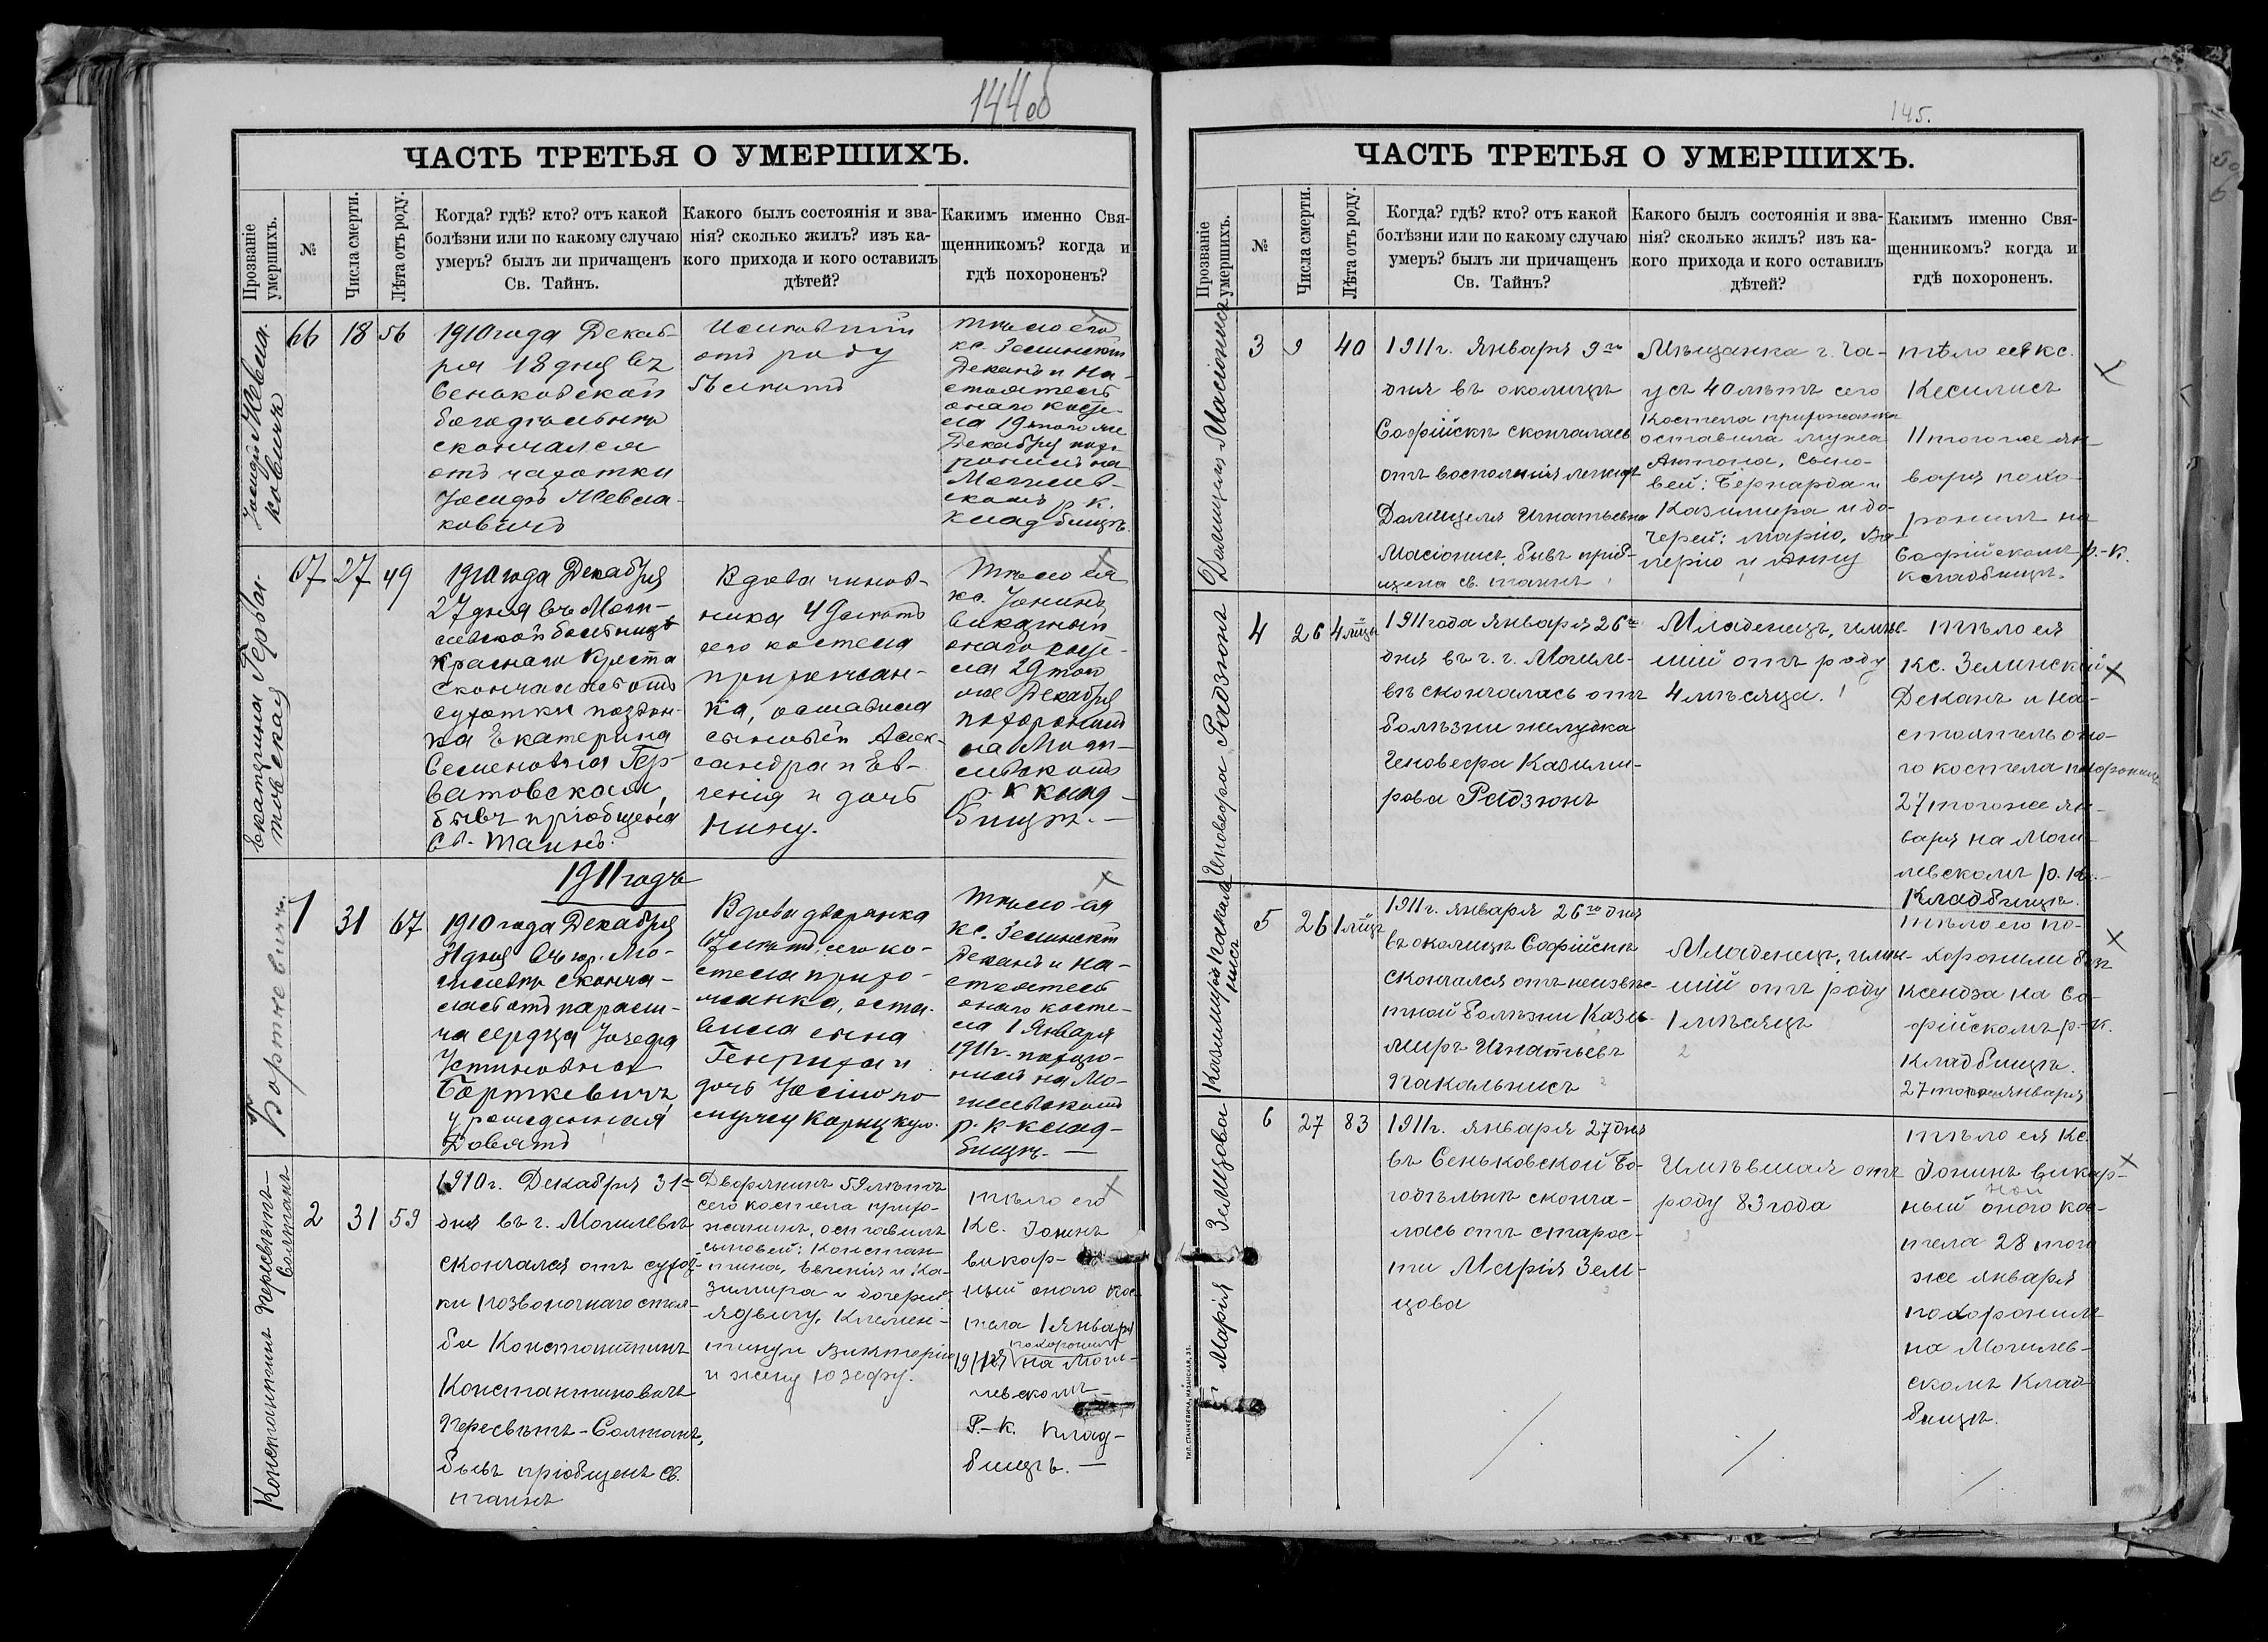 144об
ЧАСТЬ ТРЕТЬЯ О УМЕРШИХЪ.
Прозваніе
умершихъ.
№
Числа смерти.
Лѣта отъ роду.
Когда? гдѣ? кто? отъ какой
болѣзни или по какому случаю
умеръ? былъ ли причащенъ
Св. Тайнъ.
Какого былъ состоянія и зва-
нія? сколько жилъ? изъ ка-
кого прихода и кого оставилъ
дѣтей?
Какимъ именно Свя-
щенникомъ? когда и
гдѣ похороненъ?
66
18
56
1910 года Декаб-
ря 18 дня въ
Сеньковской
богодѣльнѣ
скончался
отъ чахотки
Іосифъ
ковичъ
отъ роду
тѣло его
кс. Зелинскій
Деканъ и На-
стоятель
онаго косте-
ла 19 того же
Декабря похо-
ронилъ на
Могилев-
скомъ р. к.
кладбищѣ.
Екатерина Герва-
товская
67
27
49
1910 года Декабря
27 дня въ Моги-
левской больницѣ
Краснаго Креста
скончалась отъ
сухотки
Екатерина
Семеновна Гер-
ватовская,
бывъ пріобщена
Св. Таинъ.
Вдова чинов-
ника 49 лѣтъ
сего костела
прихожан-
ка, оставила
сыновей Алек-
сандра и Ев-
генія и дочь
Нину.
Тѣло ея
кс. Іонинъ
викарный
онаго косте-
ла 29 того
же Декабря
похоронилъ
на Моги-
левскомъ
р. к клад-
бищѣ. —
1911 годъ
Борткевичъ.
1
31
67
1910 года Декабря
31 дня въ гор. Мо-
гилевѣ сконча-
лась отъ парали-
ча сердца Іозефа
Устиновна
Борткевичъ
урожденная
Довятъ
Вдова дворянка
67 лѣтъ, сего ко-
стела прихо-
жанка, оста-
вила сына
Генриха и
дочь по
мужу
Тѣло ея
кс. Зелинскій
Деканъ и На-
стоятель
онаго косте-
ла 1 Января
1911 г. похоро-
нилъ на Мо-
гилевскомъ
р. к. клад-
бищѣ. —
Константинъ Пересвѣтъ-
Солтанъ
2
31
59
1910 г. Декабря 31
дня въ г. Могилевѣ
скончался отъ сухот-
ки позвоночнаго стол-
ба Константинъ
Константиновичъ
Пересвѣтъ-Солтанъ,
бывъ пріобщенъ св.
таинъ
Дворянинъ 59 лѣтъ
сего костела прихо-
жанинъ, оставилъ
сыновей: Констан-
тина, Евгенія и Ка-
зимира и дочерей
Ядвигу, Клемен-
тину и Викторію
и жену Юзефу.
тѣло его
Кс. Іонинъ
викар-
ный онаго кос-
тела 1 января
похоронилъ
1911 г на Моги-
левскомъ
Р.-К. клад-
бищѣ. —
145.
ЧАСТЬ ТРЕТЬЯ О УМЕРШИХЪ.
Прозваніе
умершихъ.
№
Числа смерти.
Лѣта отъ роду.
Когда? гдѣ? кто? отъ какой
болѣзни или по какому случаю
умеръ? былъ ли причащенъ
Св. Тайнъ?
Какого былъ состоянія и зва-
нія? сколько жилъ? изъ ка-
кого прихода и кого оставилъ
дѣтей?
Какимъ именно Свя-
щенникомъ? когда и
гдѣ похороненъ.
3
9
40
1911 г. Января 9го
дня въ околицѣ
Софійскѣ скончалась
отъ воспаленія легкихъ
Домицеля Игнатьевна
Масіонисъ, бывъ пріоб-
щена св. таинъ
Мѣщанка г. Ча-
усъ 40 лѣтъ сего
Костела прихожанка
оставила мужа
Антона, сыно-
вей: Бернарда и
Казимира и до-
черей: Марію, Ва-
лерію и Анну
тѣло ея кс.
Кесилисъ
11 того же ян-
варя похо-
ронилъ на
Софійскомъ р.-к.
кладбищѣ.
Геновефа Радзюнъ
4
26
4 мѣц
1911 года января 26го
дня въ г. г. Могиле-
вѣ скончалась отъ
болѣзни желудка
Геновефа Казими-
рова Радзюнъ
Младенецъ, имѣв-
шій отъ роду
4 мѣсяца.
тѣло ея
Кс. Зелинскій
Деканъ и на-
стоятель она-
го костела похоронилъ
27 того же ян-
варя на Моги-
левскомъ р. к.
Кладбищѣ.
5
26
1 мѣц
1911 г. января 26го дня
въ околицѣ Софійскѣ
скончался отъ неизвѣс-
тной болѣзни Кази-
миръ Игнатьевъ
Пакальнисъ
Младенецъ, имѣв-
шій отъ роду
1 мѣсяцъ
тѣло его по-
хоронили безъ
ксендза на Со-
фійскомъ р.-к.
Кладбищѣ.
27 того же января
Марія Земцова
6
27
83
1911 г. января 27 дня
въ Сеньковской Бо-
годѣльнѣ сконча-
лась отъ старос-
ти Марія Зем-
цова
Имѣвшая отъ
роду 83 года
тѣло ея Кс.
Іонинъ викар-
ный оного кос-
тела 28 того
же января
похоронилъ
на Могилев-
скомъ Клад-
бищѣ.
ТИП. СТАНКЕВИЧА, КАЗАНСКАЯ, 35.